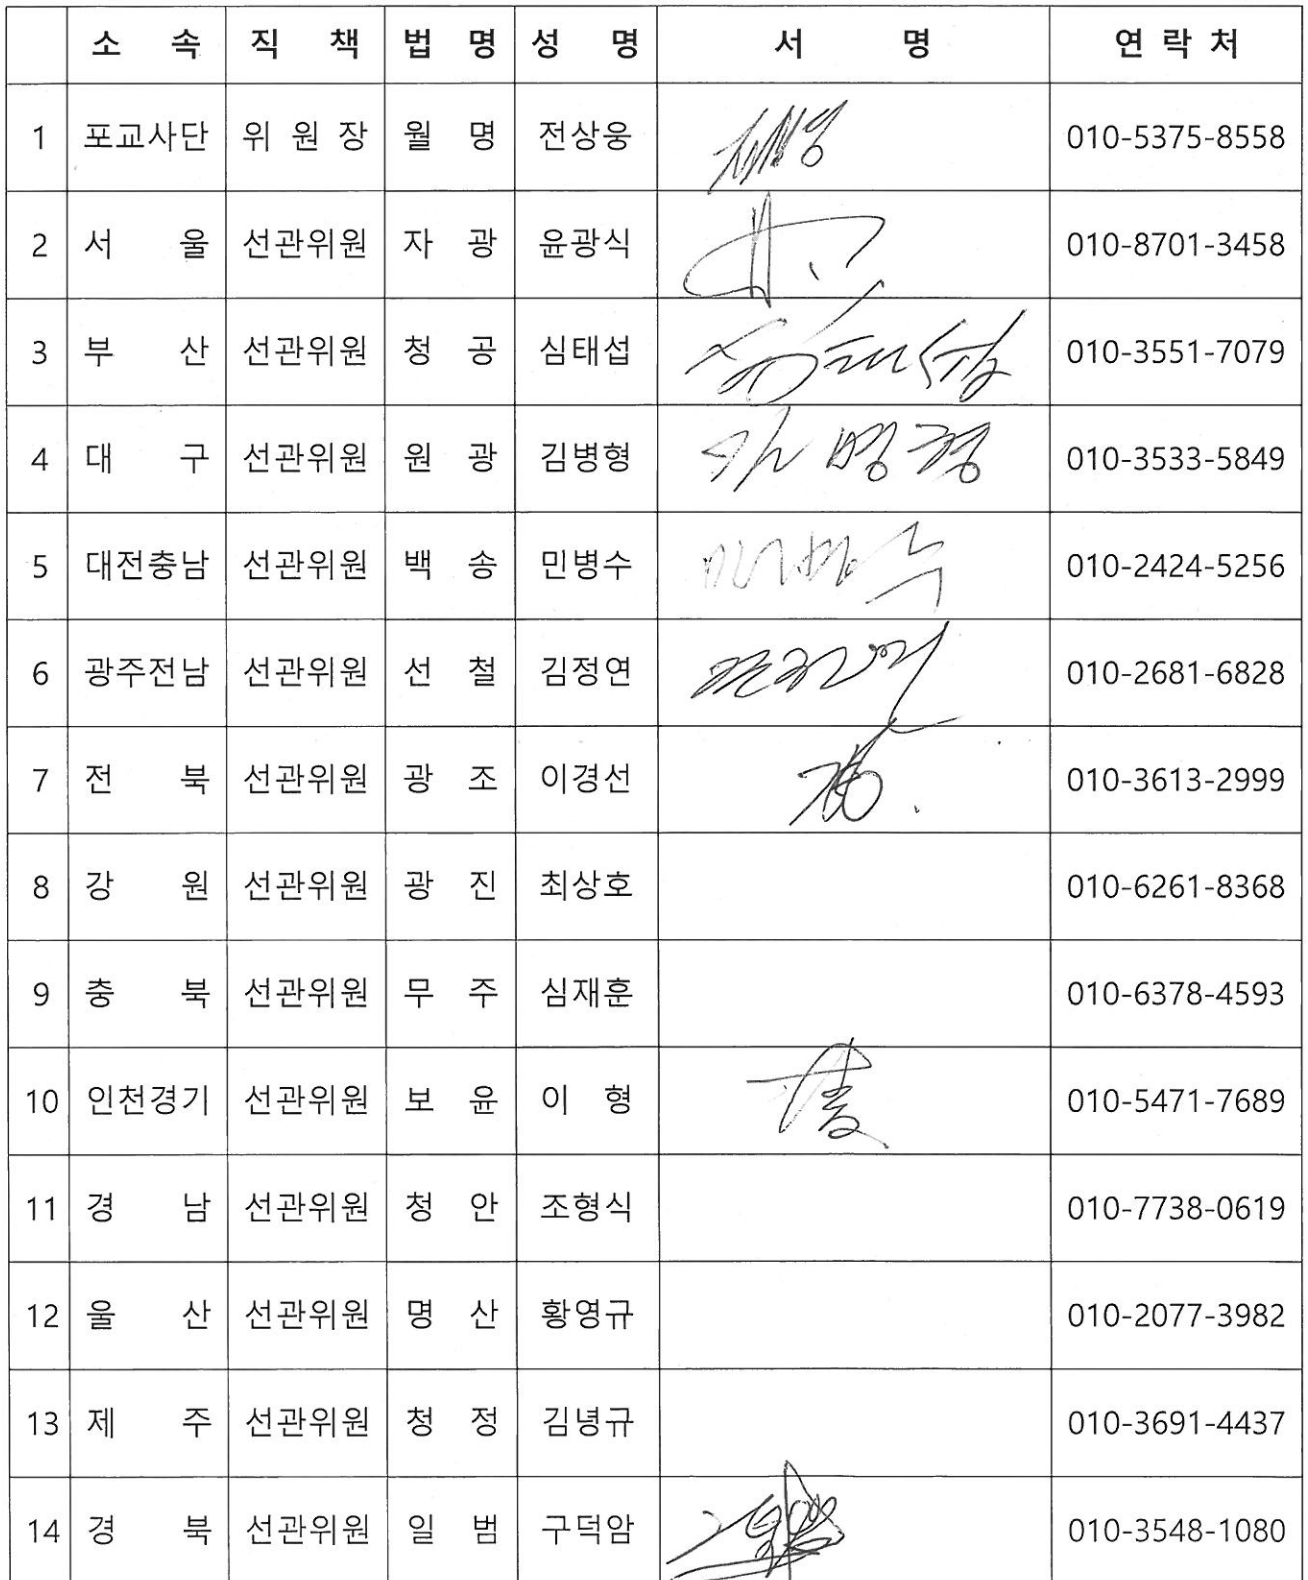 소 속 직 책 법 명 성 명 서 명 연 락 처
1 포교사단 위 원 장 월 명 전상웅 010-5375-8558
2 서 울 선관위원 자 광 윤광식 010-8701-3458
3 부 산 선관위원 청 공 심태섭 심태섭 010-3551-7079
4 대 구 선관위원 원 광 김병형 김병형 010-3533-5849
5 대전충남 선관위원 백 송 민병수 민병수 010-2424-5256
6 광주전남 선관위원 선 철 김정연 010-2681-6828
7 전 북 선관위원 광 조 이경선 010-3613-2999
8 강 원 선관위원 광 진 최상호 010-6261-8368
9 충 북 선관위원 무 주 심재훈 010-6378-4593
10 인천경기 선관위원 보 윤 이 형 010-5471-7689
11 경 남 선관위원 청 안 조형식 010-7738-0619
12 울 산 선관위원 명 산 황영규 010-2077-3982
13 제 주 선관위원 청 정 김녕규 010-3691-4437
14 경 북 선관위원 일 범 구덕암 010-3548-1080